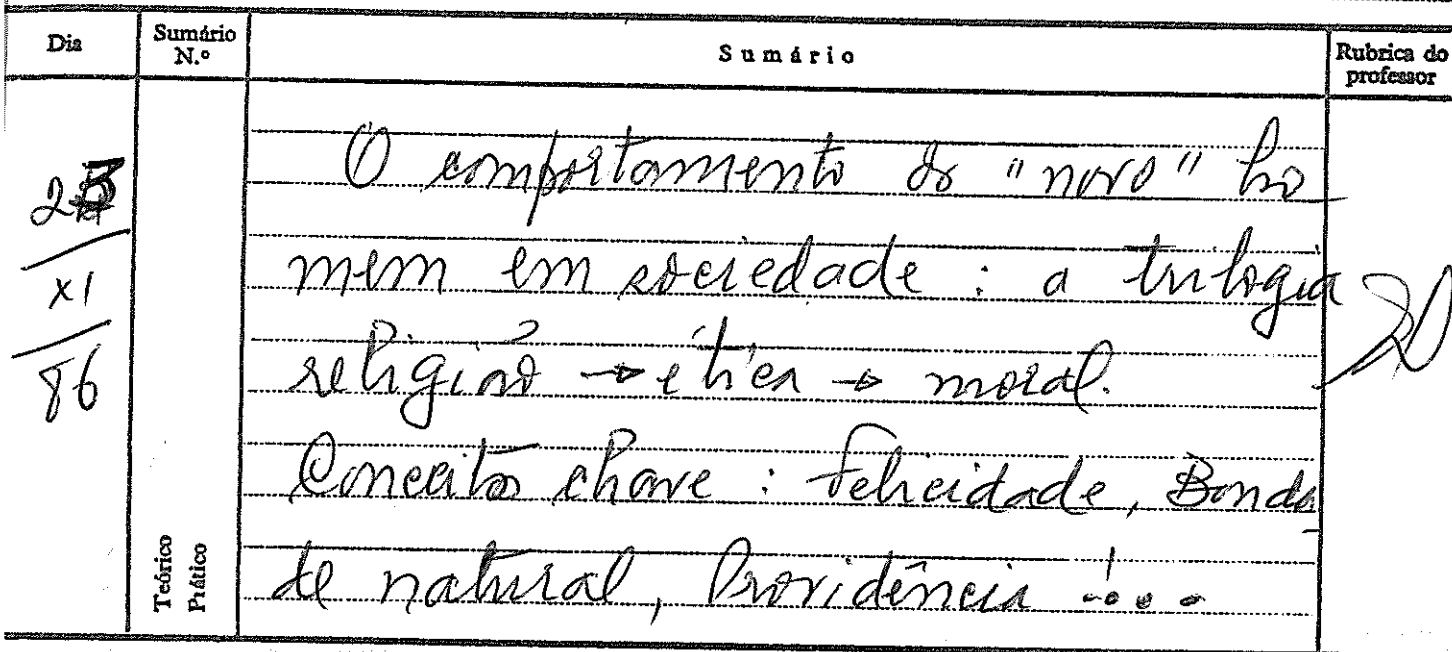 Dia
Sumário N.º
Sumário
Rubrica do professor
25
XI
86
O comportamento do "novo" ho
mem em sociedade : a trilogia
religião → ética → moral.
Conceitos chave : Felicidade, Bonda
de natural, Providência ...
Teórico
Prático